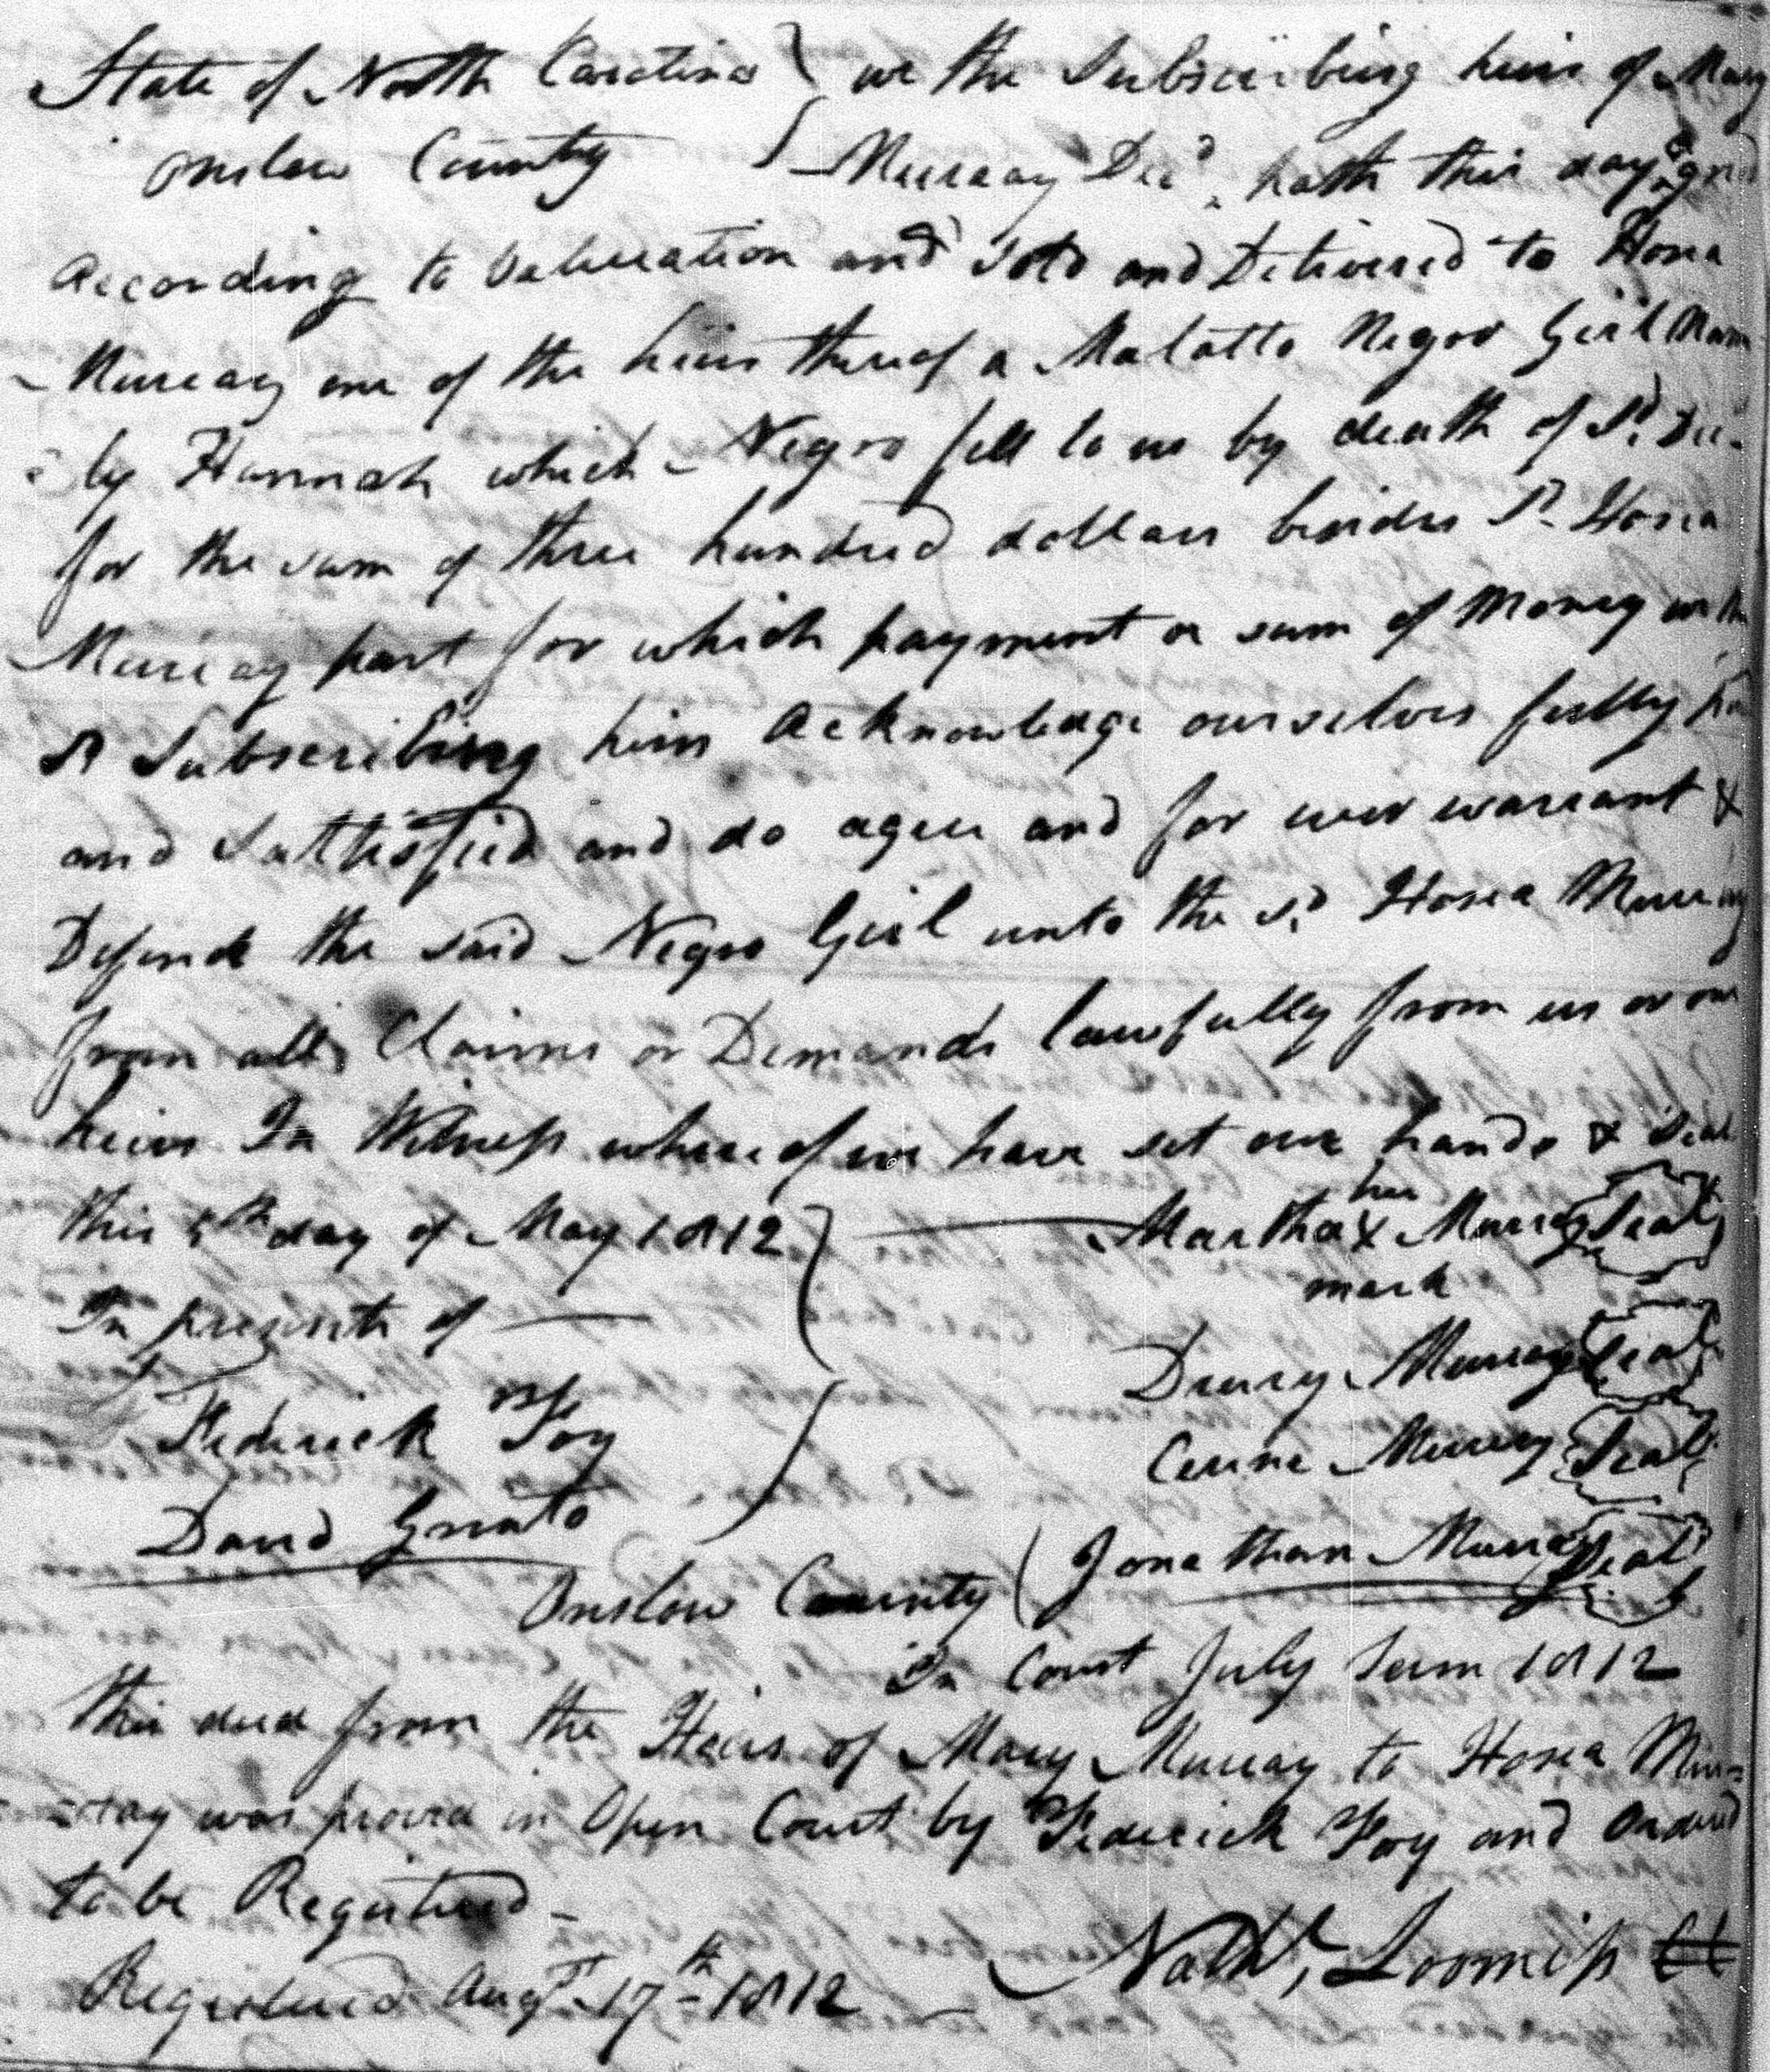 State of North Carolina } we the Subscribing heirs of Mary
Onslow County } Murray Decd. hath this day agred
According to Valuation and Sold and Delivered to Hosea
Murray one of the heirs thereof a Malatto Negor Girl Nam
by Hannah which Negro fell to us by death of sd. Dec.
for the sum of three hundred dollars besides sd. Hosea
Murray part for which payment or sum of Money we the
sd Subscribing heirs Acknowledge ourselves fully
and Sattisfied and do agree and for ever warrant &
Defend the said Negro Girl unto the sd. Hosea Murray
from all Claims or Demands lawfully from us or our
heirs In Witness whereof we have set our hands & Seal
this 5th day of May 1812 } Martha her X mark Murray Seal
In presents of
Drury Murray Seal
Frederick Foy
Murray Seal
David
Jonathan Murray Seal
Onslow County
In Court July Term 1812
this deed from the Heirs of Mary Murray to Hosea Mur=
=ray was proved in Open Court by Frederick Foy and Ordered
to be Registered -
Nathl. Loomis
Registered Augst. 17th 1812